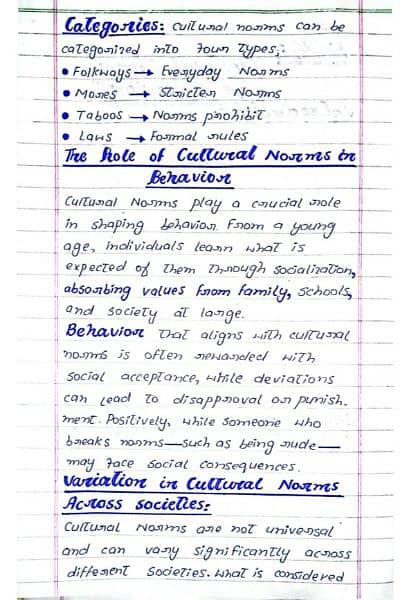 Categories: Cultural norms can be
categorized into four types;
• Folkways → Everyday Norms
• Mores → Stricter Norms
• Taboos → Norms prohibit
• Laws → Formal rules
The Role of Cultural Norms in
Behavior
Cultural Norms play a crucial role
in shaping behavior. From a young
age, individuals learn what is
expected of them through socialization,
absorbing values from family, schools,
and society at large.
Behavior that aligns with cultural
norms is often rewarded with
social acceptance, while deviations
can lead to disapproval or punish-
ment. Positively, while someone who
breaks norms—such as being rude—
may face social consequences.
Variation in Cultural Norms
Across societies:
Cultural Norms are not universal
and can vary significantly across
different societies. What is considered